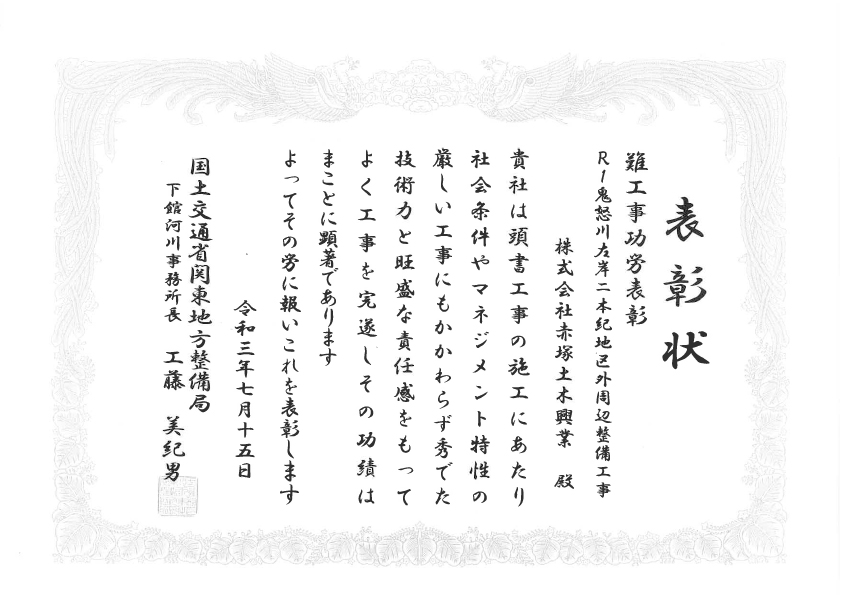 表彰状
難工事功労表彰
R1鬼怒川左岸二本紀地区外周辺整備工事
株式会社赤塚土木興業　殿
貴社は頭書工事の施工にあたり
社会条件やマネジメント特性の
厳しい工事にもかかわらず秀でた
技術力と旺盛な責任感をもって
よく工事を完遂しその功績は
まことに顕著であります
よってその労に報いこれを表彰します
令和三年七月十五日
国土交通省関東地方整備局
下館河川事務所長　工藤　美紀男